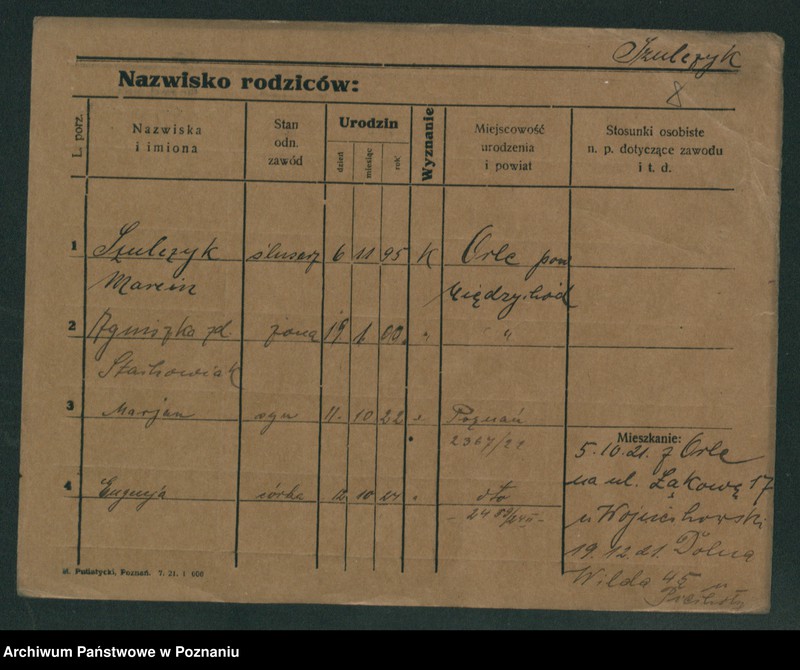 Szulczyk
8
Nazwisko rodziców:
L. porz.
Nazwiska
i imiona
Stan
odn.
zawód
Urodzin
dzień
miesiąc
rok
Wyznanie
Miejscowość
urodzenia
i powiat
Stosunki osobiste
n. p. dotyczące zawodu
i t. d.
1 Szulczyk ślusarz 6 11 95 K Orle pow
Marcin Międzychód
2 Agniszka zd. żona 19 1 00 " "
Stachowiak
3 Marjan syn 11. 10 22 Poznań
2367/22
4 Eugenja córka 12 10 24 " dto
Mieszkanie:
5.10.21. z Orle
na ul. Łąkową 17
u Wojciechowski
19.12.21. Dolna
Wilda 45 u
M. Putiatycki, Poznań. 7. 21. 1 600
Archiwum Państwowe w Poznaniu